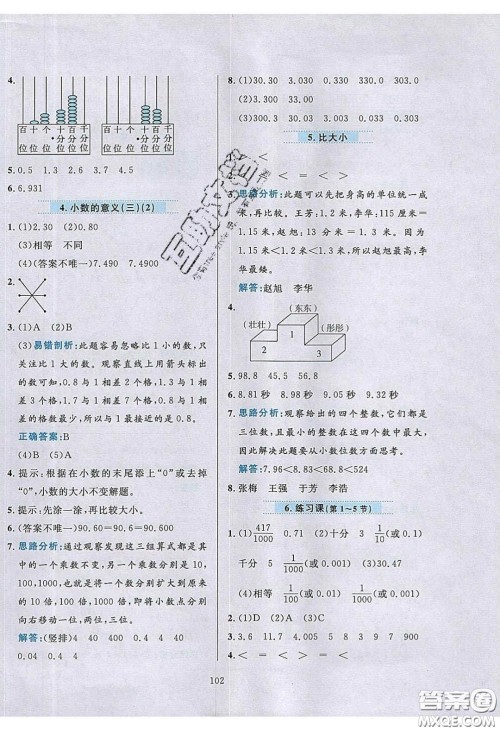 4.
百 十 个 十 百 千
· 分 分 分
位 位 位 位 位 位
百 十 个 十 百 千
· 分 分 分
位 位 位 位 位 位
5. 0.5 1.3 0.04 0.4
6. 6.931
4. 小数的意义(三)(2)
1. (1)2.30 (2)0.80
(3)相等 不同
(4)(答案不唯一)7.49 7.4900
2.
3. (1)A (2)A
(3)易错剖析:此题容易忽略比1小的数,只
关注比1大的数。观察直线上用箭头标出
的数可知,0.8与1相差2个格,1.3与1相
差3个格,0.4与1相差6个格,1.5与1相差
5个格,所以与1最接近的是0.8。
正确答案:B
(4)B (5)B
4. 提示:根据在小数的末尾添上“0”或去掉
“0”,小数的大小不变解题。
5. 提示:先涂一涂,再比较大小。
6. (答案不唯一)90.60=90.6=90.600
7. 思路分析:通过观察发现这三组算式都是其
中的一个乘数不变,另一个乘数分别扩大到原来
的10倍,100倍,即将小数点分别
向右移动一位,两位,三位。
解答:(竖排)4 40 400 0.4 4 40
0.04 0.4 4
8. (1)30.30 3.030 0.330 0.303
(2)3.003
(3)300.33 303.03 330.03
5. 比大小
< = < = <
思路分析:此题可以先把身高的单位统一成
米,再比较。王芳:1.2米,李华:115厘米=
1.15米<1.2米<1.3米,所以赵旭最高,李
华最矮。
解答:赵旭 李华
4.
(东东)
(壮壮)
(彤彤)
2 1 3
5. 98.8 45.5
6. 8.81秒 8.94秒 9.05秒 9.32秒
7. 思路分析:观察给出的四个整数,它们都是
三位数,且最小的整数在这四个数中最大,
因此解决此题要从小数位数方面思考。
解答:7.96<8.83<68.8<524
8. 张梅 王强 于芳 李浩
6. 练习课(第1~5节)
1. (1)417/1000 0.71 (2)十分 3 1/10(或0.1)
千分 5 1/1000(或0.001)
(4)相等 1/100(或0.01) 1/10(或0.1)
2. (1)D (2)A (3)A
3. 3.6 11.7 4.005 5.005
4. < = = <
102
答案圈
MXQE.COM